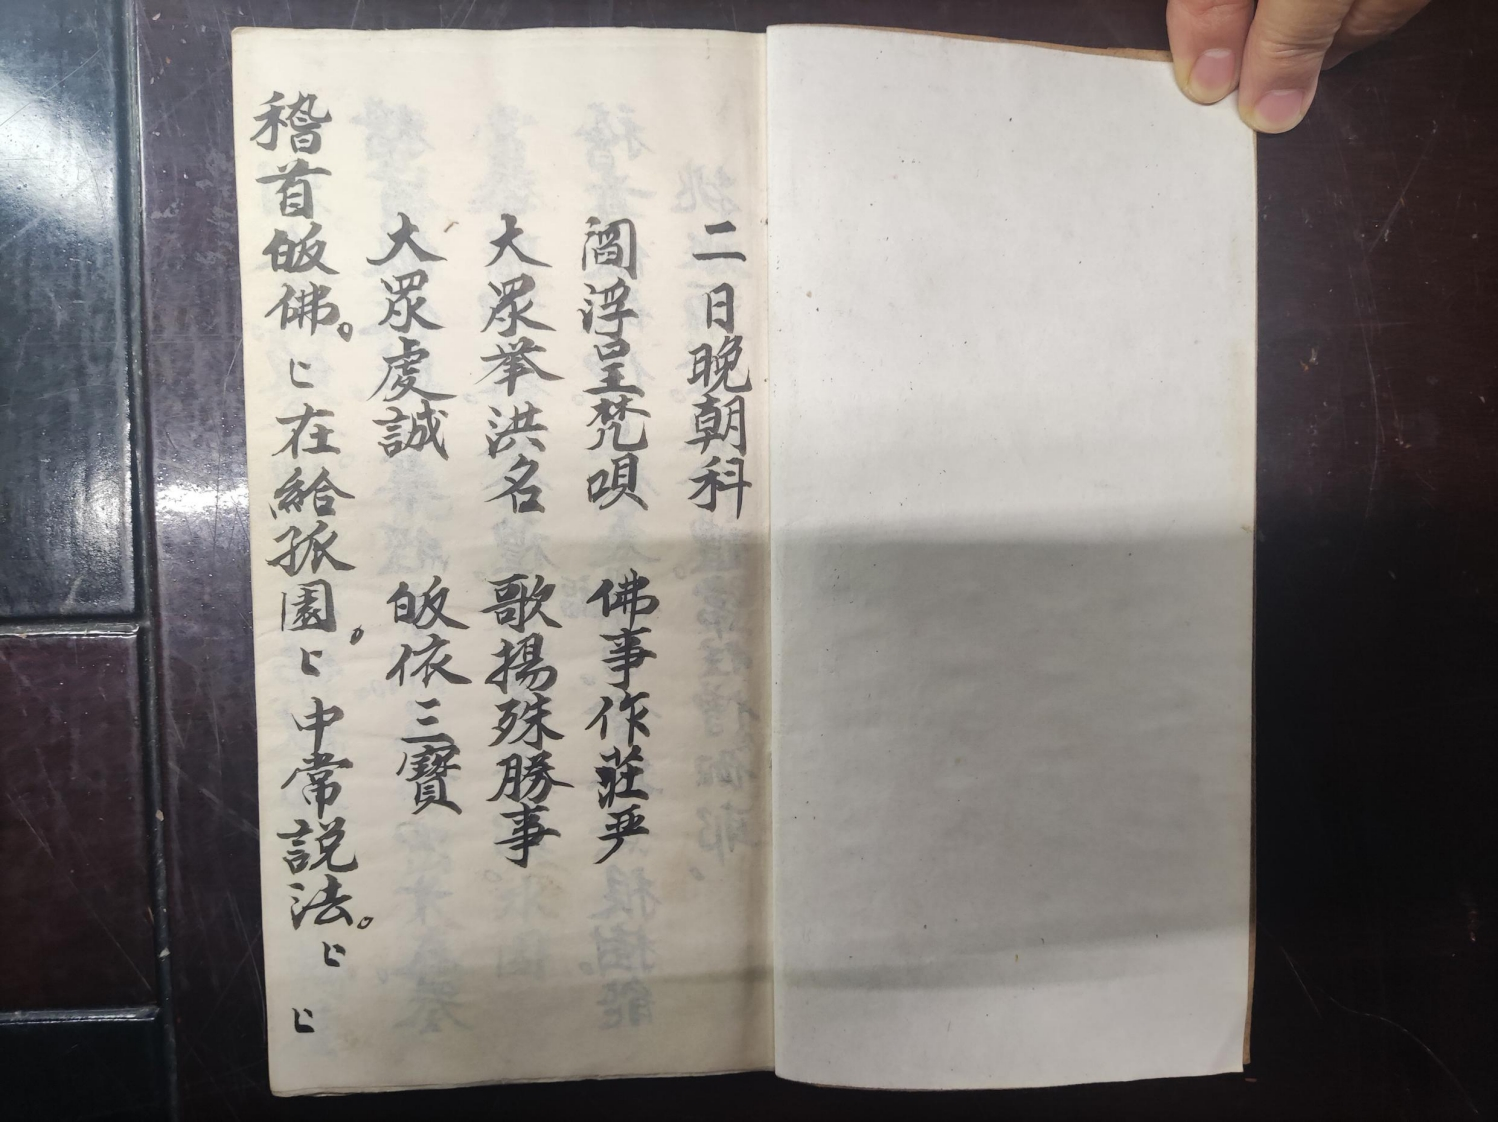 二日晚朝科
閻浮呈梵唄 佛事作莊严
大眾举洪名 歌揚殊勝事
大眾虔誠 皈依三寶
稽首皈佛。匕在給孤園，匕中常説法。匕匕